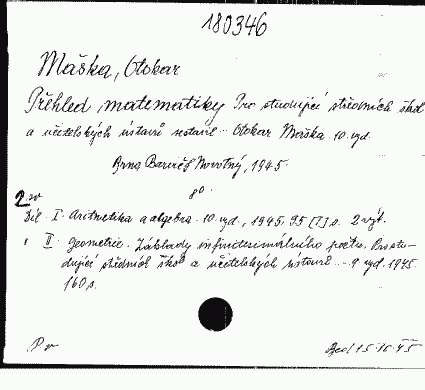 180346
Maška, Otokar
Přehled matematiky Pro studující středních škol
a učitelských ústavů sestavil Otokar Maška. 10. vyd.
Brno Barvič Novotný, 1945.
8°.
2 sv
Díl I. Aritmetika a algebra. 10. vyd., 1945, 95 [1] s. 2 výt.
II. Geometrie. Základy infinitesimálního počtu. Pro stu-
dující středních škol a učitelských ústavů ... 9. vyd. 1945.
160 s.